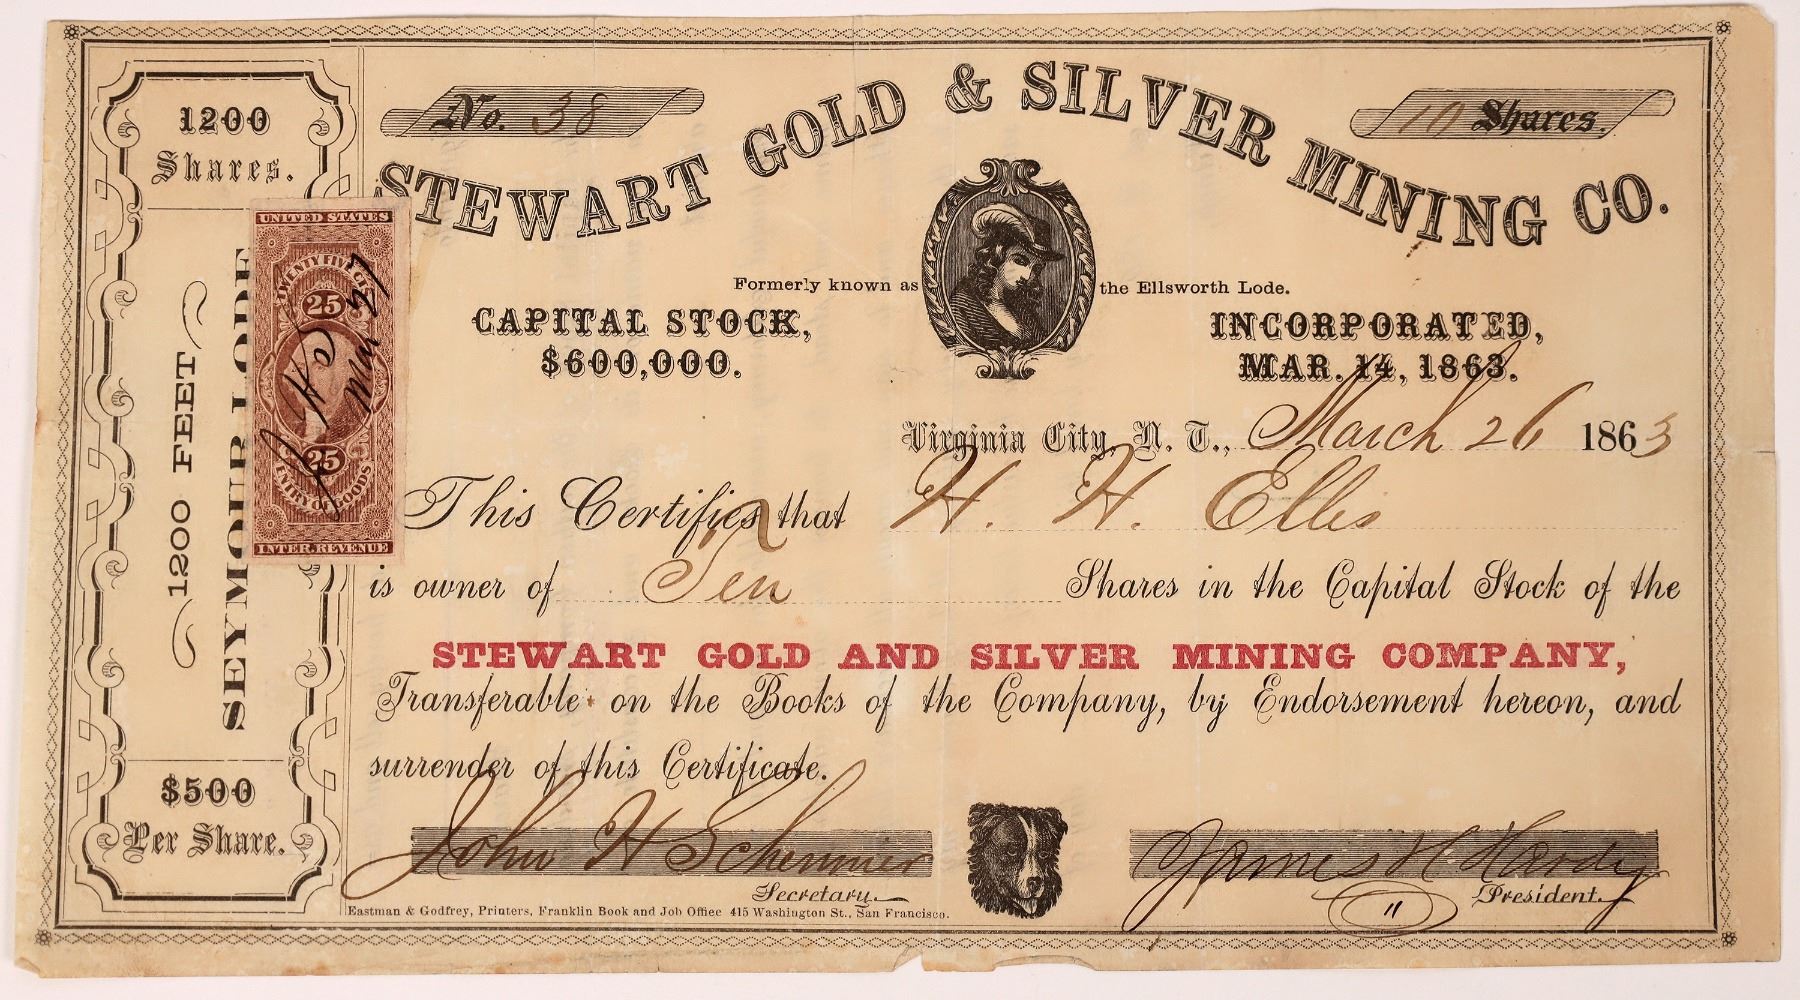 No. 38
10 Shares.
STEWART GOLD & SILVER MINING CO.
Formerly known as the Ellsworth Lode.
CAPITAL STOCK,
$600,000.
INCORPORATED,
MAR. 14, 1863.
Virginia City, N. T., March 26 1863
This Certifies that H. H. Ellis
is owner of Ten Shares in the Capital Stock of the
STEWART GOLD AND SILVER MINING COMPANY,
Transferable on the Books of the Company, by Endorsement hereon, and
surrender of this Certificate.
John H Schemmer
Secretary.
James H Hardy
President.
Eastman & Godfrey, Printers, Franklin Book and Job Office 415 Washington St., San Francisco.
1200
Shares.
1200 FEET
SEYMOUR LODE
$500
Per Share.
UNITED STATES
TWENTY FIVE CTS
25
Mar 27
25
ENTRY OF GOODS
INTER. REVENUE